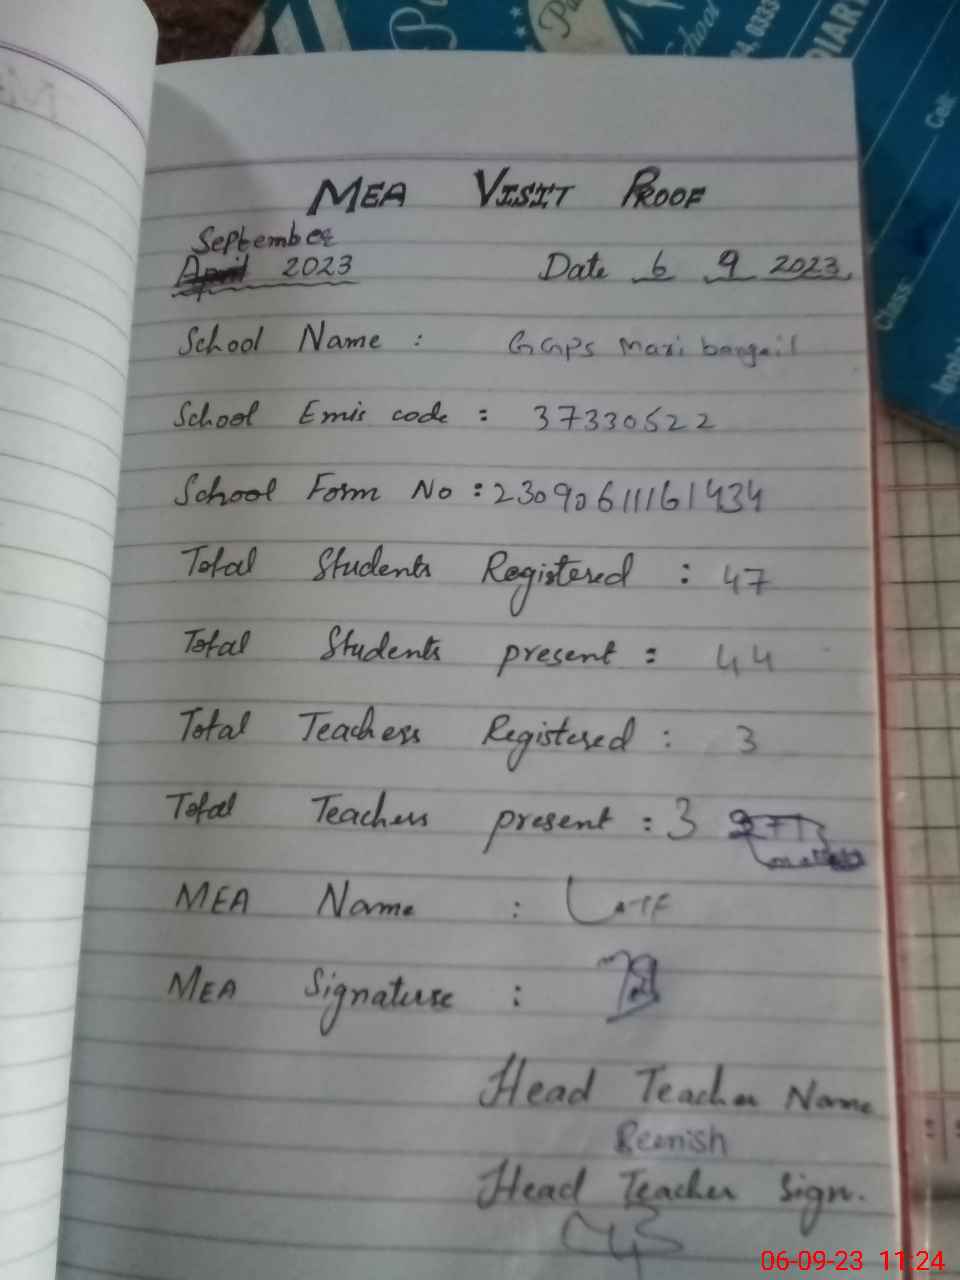 School
0333
DIARY
Cell:
Class:
MEA VISIT PROOF
September
April 2023
Date 6 9 2023.
School Name : GGPS Mari bangail
School Emis code : 37330522
School Form No : 23090611161434
Total Students Registered : 47
Total Students present : 44
Total Teachers Registered : 3
Total Teachers present : 3
MEA Name :
MEA Signature :
Head Teacher Name
Remish
Head Teacher Sign.
06-09-23 11:24